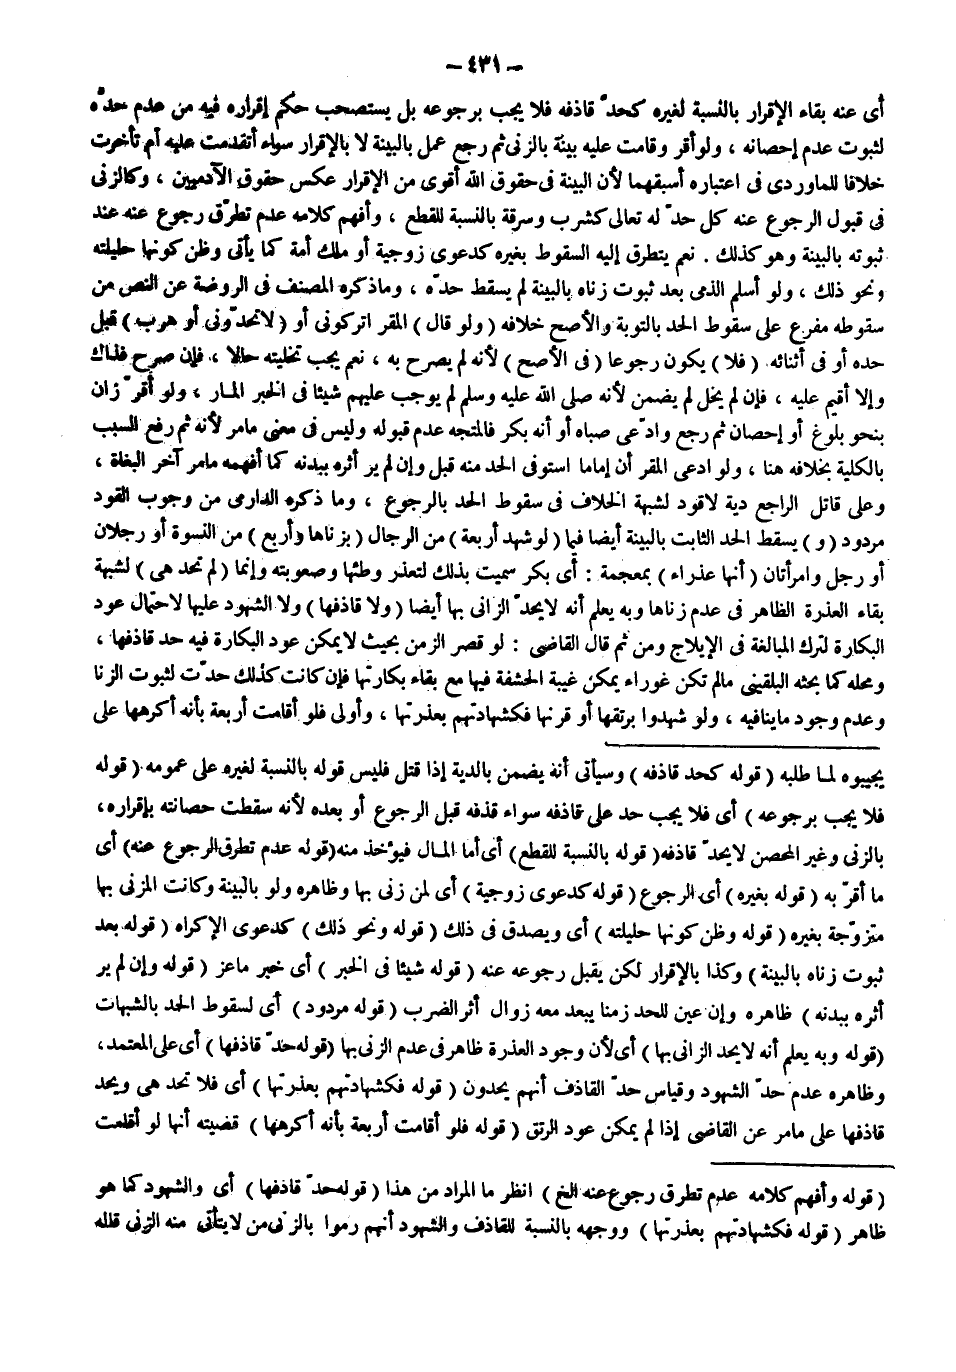 – ٤٣١ –
أى عنه بقاء الإقرار بالنسبة لغيره كحدّ قاذفه فلا يجب برجوعه بل يستصحب حكم إقراره فيه من عدم حدّه
لثبوت عدم إحصانه ، ولو أقر وقامت عليه بينة بالزنى ثم رجع عمل بالبينة لا بالإقرار سواء أتقدمت عليه أم تأخرت
خلافا للماوردى فى اعتباره أسبقهما لأن البينة فى حقوق الله أقوى من الإقرار عكس حقوق الآدميين ، وكالزنى
فى قبول الرجوع عنه كل حدّ له تعالى كشرب وسرقة بالنسبة للقطع ، وأفهم كلامه عدم تطرّق رجوع عنه عند
ثبوته بالبينة وهو كذلك . نعم يتطرق إليه السقوط بغيره كدعوى زوجية أو ملك أمة كما يأتى وظن كونها حليلته
ونحو ذلك ، ولو أسلم الذمى بعد ثبوت زناه بالبينة لم يسقط حدّه ، وماذكره المصنف فى الروضة عن النص من
سقوطه مفرع على سقوط الحد بالتوبة والأصح خلافه (ولو قال) المقر اتركونى أو (لاتحدّونى أو هرب) قبل
حده أو فى أثنائه (فلا) يكون رجوعا (فى الأصح) لأنه لم يصرح به ، نعم يجب تخليته حالا ، فإن صرح فذاك
وإلا أقيم عليه ، فإن لم يخل لم يضمن لأنه صلى الله عليه وسلم لم يوجب عليهم شيئا فى الخبر المار ، ولو أقرّ زان
بنحو بلوغ أو إحصان ثم رجع وادّعى صباه أو أنه بكر فالمتجه عدم قبوله وليس فى معنى مامر لأنه ثم رفع السبب
بالكلية بخلافه هنا ، ولو ادعى المقر أن إماما استوفى الحد منه قبل وإن لم ير أثره ببدنه كما أفهمه مامر آخر البغاة ،
وعلى قاتل الراجع دية لاقود لشبهة الخلاف فى سقوط الحد بالرجوع ، وما ذكره الدارمى من وجوب القود
مردود (و) يسقط الحد الثابت بالبينة أيضا فيما (لو شهد أربعة) من الرجال (بزناها وأربع) من النسوة أو رجلان
أو رجل وامرأتان (أنها عذراء) بمعجمة : أى بكر سميت بذلك لتعذر وطئها وصعوبته وإنما (لم تحد هى) لشبهة
بقاء العذرة الظاهر فى عدم زناها وبه يعلم أنه لايحدّ الزانى بها أيضا (ولا قاذفها) ولا الشهود عليها لاحتمال عود
البكارة لترك المبالغة فى الإيلاج ومن ثم قال القاضى : لو قصر الزمن بحيث لايمكن عود البكارة فيه حد قاذفها ،
ومحله كما بحثه البلقينى مالم تكن غوراء يمكن غيبة الحشفة فيها مع بقاء بكارتها فإن كانت كذلك حدّت لثبوت الزنا
وعدم وجود ماينافيه ، ولو شهدوا برتقها أو قرنها فكشهادتهم بعذرتها ، وأولى فلو أقامت أربعة بأنه أكرهها على
يجيبوه لما طلبه (قوله كحد قاذفه) وسيأتى أنه يضمن بالدية إذا قتل فليس قوله بالنسبة لغيره على عمومه (قوله
فلا يجب برجوعه) أى فلا يجب حد على قاذفه سواء قذفه قبل الرجوع أو بعده لأنه سقطت حصانته بإقراره،
بالزنى وغير المحصن لايحدّ قاذفه (قوله بالنسبة للقطع) أى أما المال فيؤخذ منه (قوله عدم تطرق الرجوع عنه) أى
ما أقرّ به (قوله بغيره) أى الرجوع (قوله كدعوى زوجية) أى لمن زنى بها وظاهره ولو بالبينة وكانت المزنى بها
متزوّجة بغيره (قوله وظن كونها حليلته) أى ويصدق فى ذلك (قوله ونحو ذلك) كدعوى الإكراه (قوله بعد
ثبوت زناه بالبينة) وكذا بالإقرار لكن يقبل رجوعه عنه (قوله شيئا فى الخبر) أى خبر ماعز (قوله وإن لم ير
أثره ببدنه) ظاهره وإن عين للحد زمنا يبعد معه زوال أثر الضرب (قوله مردود) أى لسقوط الحد بالشبهات
(قوله وبه يعلم أنه لايحد الزانى بها) أى لأن وجود العذرة ظاهر فى عدم الزنى بها (قوله حدّ قاذفها) أى على المعتمد،
وظاهره عدم حدّ الشهود وقياس حدّ القاذف أنهم يحدون (قوله فكشهادتهم بعذرتها) أى فلا تحد هى ويحد
قاذفها على مامر عن القاضى إذا لم يمكن عود الرتق (قوله فلو أقامت أربعة بأنه أكرهها) قضيته أنها لو أقامت
(قوله وأفهم كلامه عدم تطرق رجوع عنه الخ) انظر ما المراد من هذا (قوله حدّ قاذفها) أى والشهود كما هو
ظاهر (قوله فكشهادتهم بعذرتها) ووجهه بالنسبة للقاذف والشهود أنهم رموا بالزنى من لايتأتى منه الزنى فلله